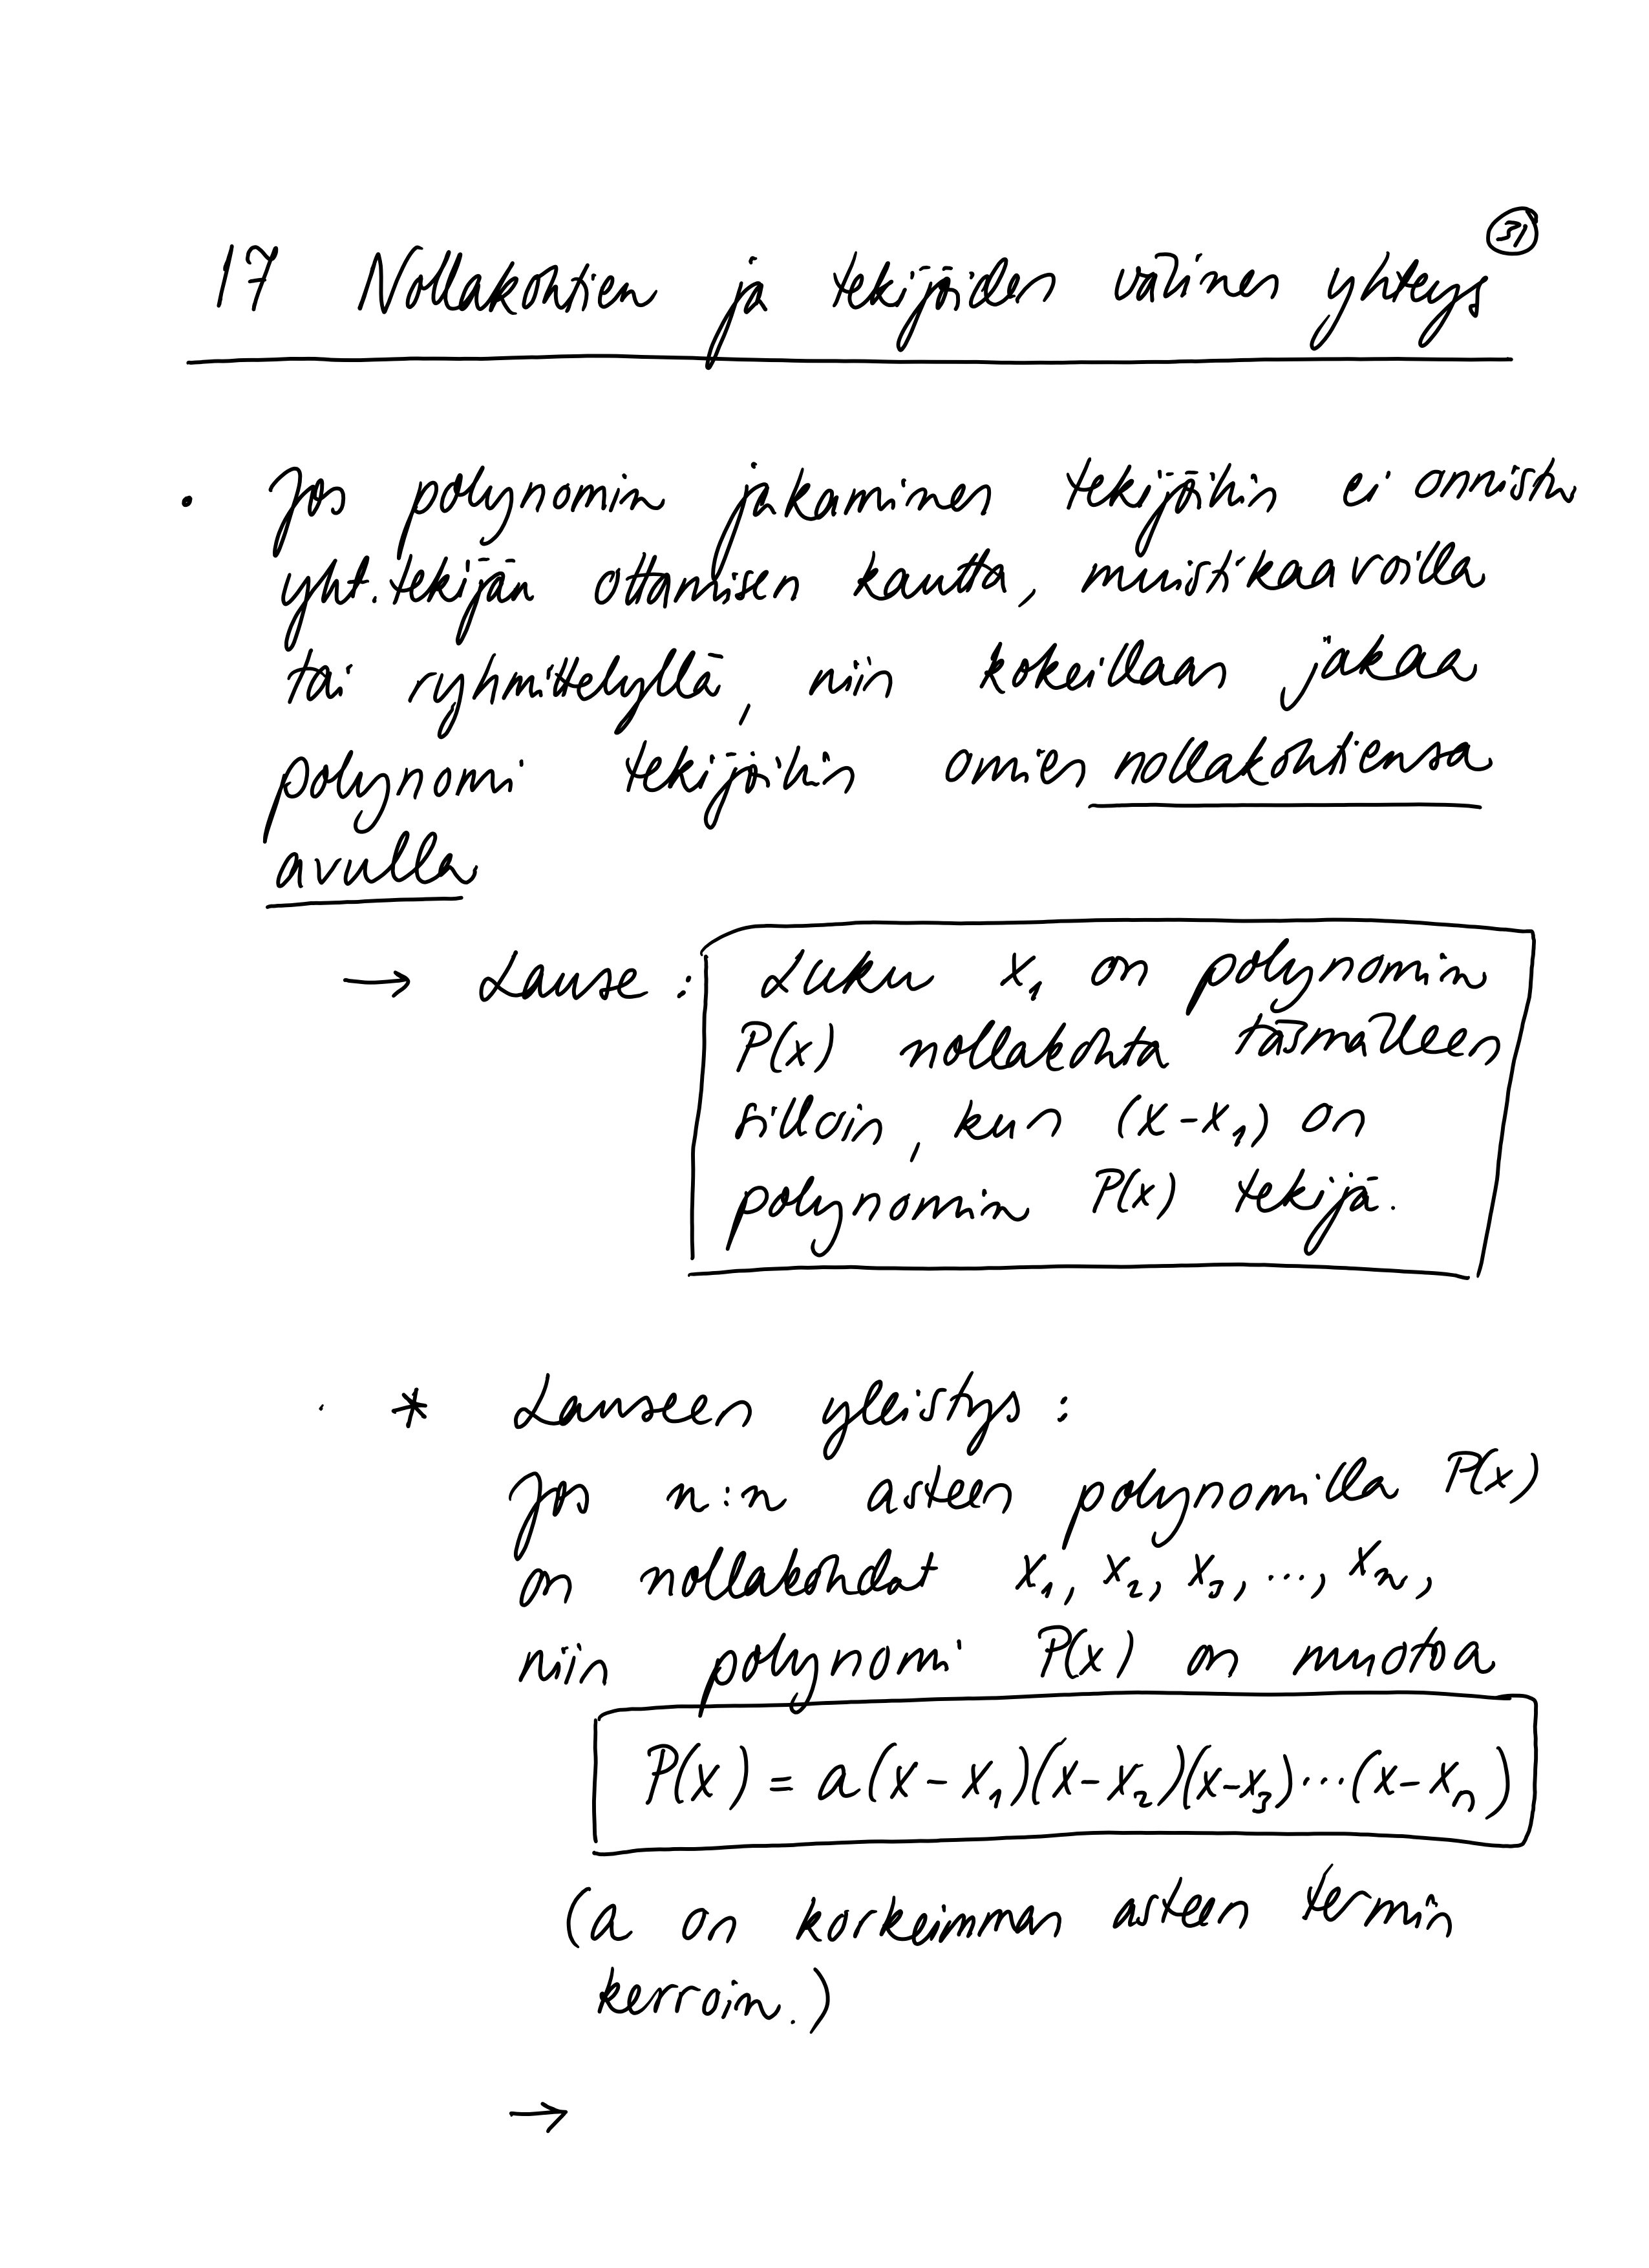 31
17 Nollakohtien ja tekijöiden välinen yhteys
• Jos polynomin jakaminen tekijöihin ei onnistu
yht. tekijän ottamisen kautta, muistikaavoilla
tai ryhmittelyllä, niin kokeillaan jakaa
polynomi tekijöihin omien nollakohtiensa
avulla
→ Lause: Luku x₁ on polynomin
P(x) nollakohta täsmälleen
silloin, kun (x-x₁) on
polynomin P(x) tekijä.
* Lauseen yleistys:
Jos n:n asteen polynomilla P(x)
on nollakohdat x₁, x₂, x₃, ..., xₙ,
niin polynomi P(x) on muotoa
P(x) = a(x-x₁)(x-x₂)(x-x₃)···(x-xₙ)
(a on korkeimman asteen termin
kerroin.)
→